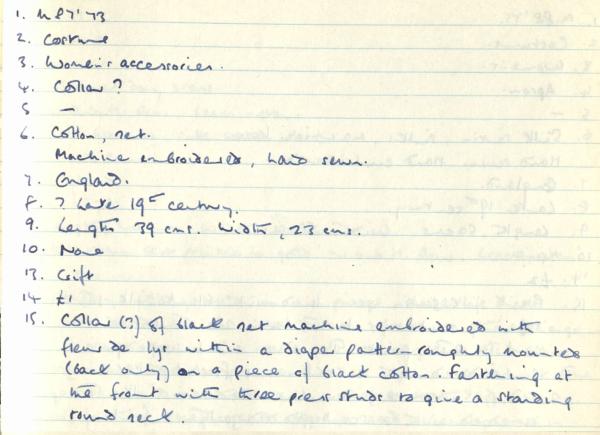 1. NPT'73
2. Costume
3. Women's accessories.
4. Collar ?
5 —
6. Cotton, net.
Machine embroidered, hand sewn.
7. England.
8. ? Late 19th century.
9. Length 39 cms. Width, 23 cms.
10. None
13. Gift
14 £1
15. Collar (?) of black net machine embroidered with
fleur de lys within a diaper pattern roughly mounted
(back only) on a piece of black cotton. Fastening at
the front with three press studs to give a standing
round neck.